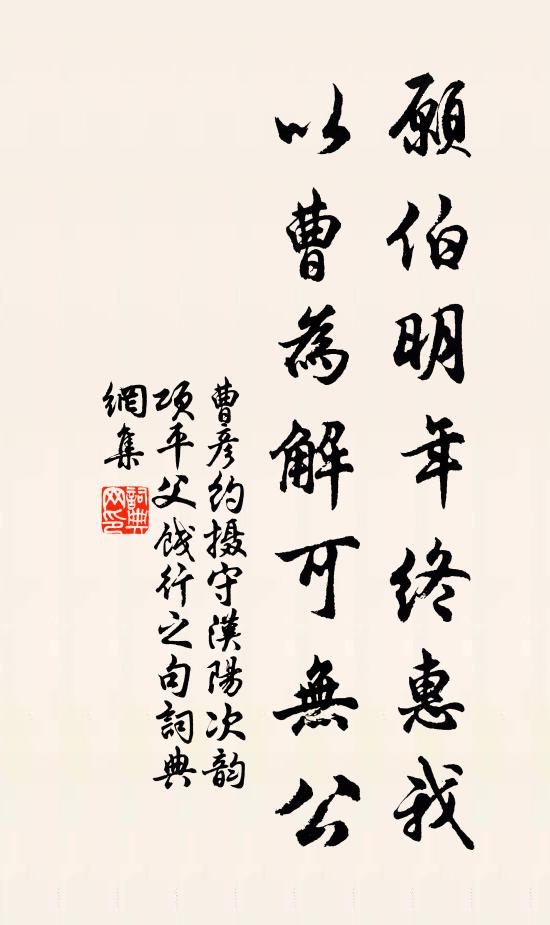 願伯明年終惠我
以曹為解可無公
曹彦約摄守漢陽次韵
項平父餞行之句詞典
網集
詞典
网印